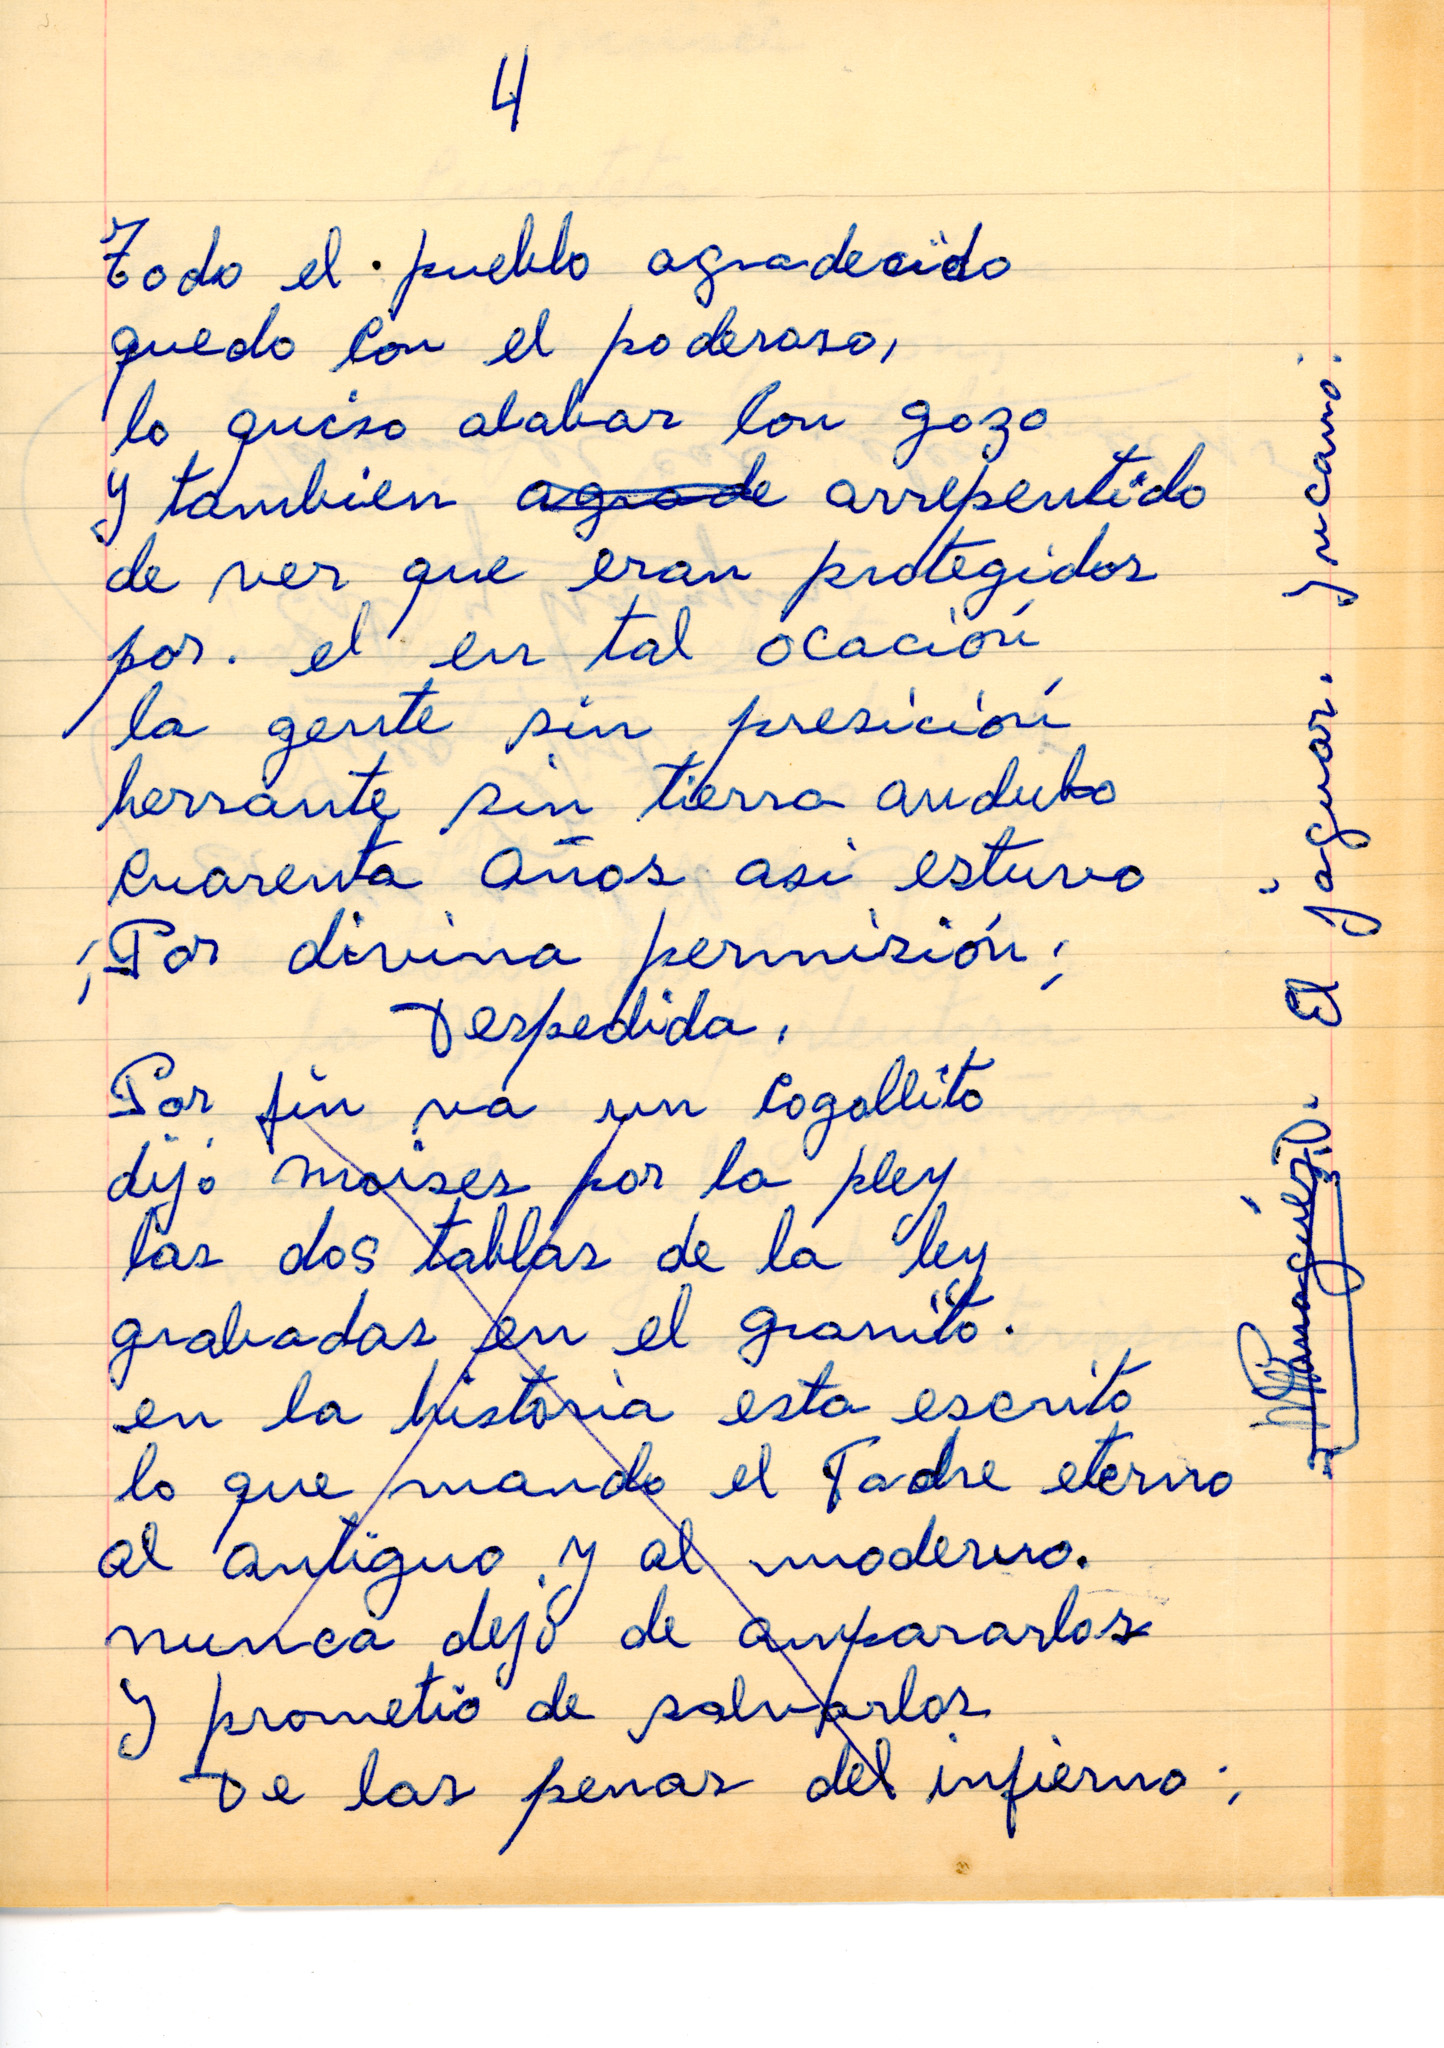 4
Todo el . pueblo agradecido
quedo con el poderoso,
lo quiso alabar con gozo
y tambien agrade arrepentido
de ver que eran protegidos
por. el en tal ocación
la gente sin presición
herrante sin tierra andubo
cuarenta años asi estuvo
¡Por divina permisión;
Despedida.
Por fin va un cogollito
dijó moises por la pley
las dos tablas de la ley
grabadas en el granito.
en la historia esta escrito
lo que mando el Padre eterno
al antiguo y al moderno.
nunca dejó de ampararlos
y prometio de salvarlos
De las penas del infierno;
El jaguar. Yucamo.